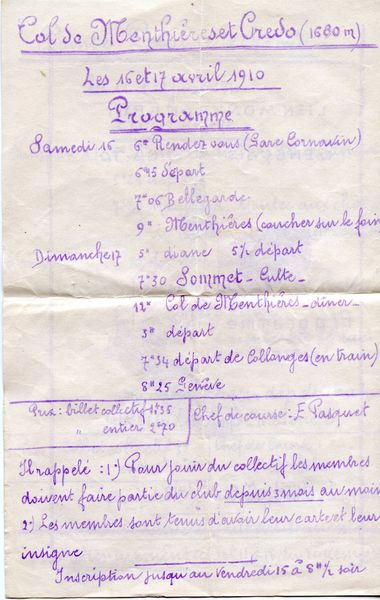 Col de Menthières et Credo (1680 m)
Les 16 et 17 avril 1910
Programme
Samedi 16 6h Rendez vous (Gare Cornavin)
6h45 Départ
7h06 Bellegarde
9h Menthières (coucher sur le foin
Dimanche 17 5h diane 5½ départ
7h30 Sommet - Culte -
12h Col de Menthières - dîner -
3h départ
7h34 départ de Collonges (en train)
8h25 Genève
Prix : billet collectif 1f35
" entier 2f70
Chef de course : E Pasquet
Il rappelé : 1°) Pour jouir du collectif les membres
doivent faire partie du club depuis 3 mois au moin
2°) Les membres sont tenus d'avoir leur carte et leur
insigne
Inscription jusqu'au Vendredi 15 à 8h½ soir